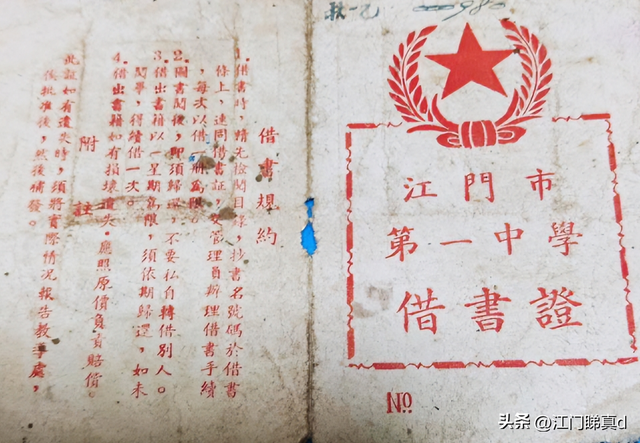 一乙
980
江門市
第一中學
借書證
No
借書規約
1.借書時，請先檢閱目錄，抄書名號碼於借書
條上，連同借書証，交管理員辦理借書手續
，每次以借 册為限。
2.圖書閱後，即須歸還，不要私自轉借別人。
3.借出書籍以一星期為限，須依期歸還，如未
閱畢，得續借一次。
4.借出書籍如有損壞遺失，應照原價負責賠償。
附註
此証如有遺失時，須將實際情況報告教導處，
俟批准後，然後補發。
头条 @江门睇真d